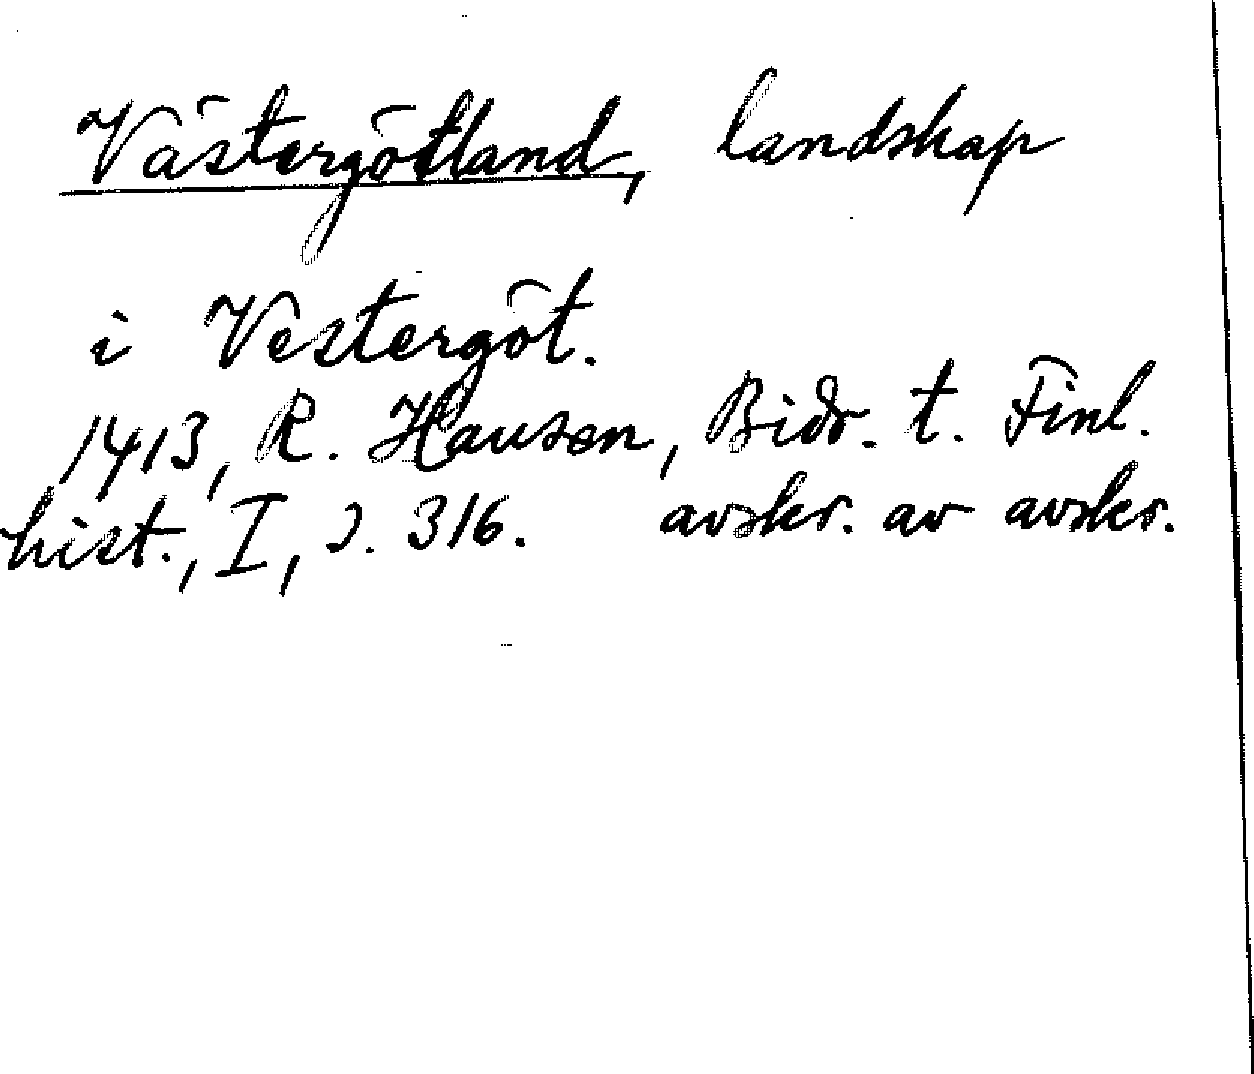 Västergötland, landskap
i Vestergöt.
1413, R. Hausen, Bidr. t. Finl.
hist., I, s. 316. avskr. av avskr.